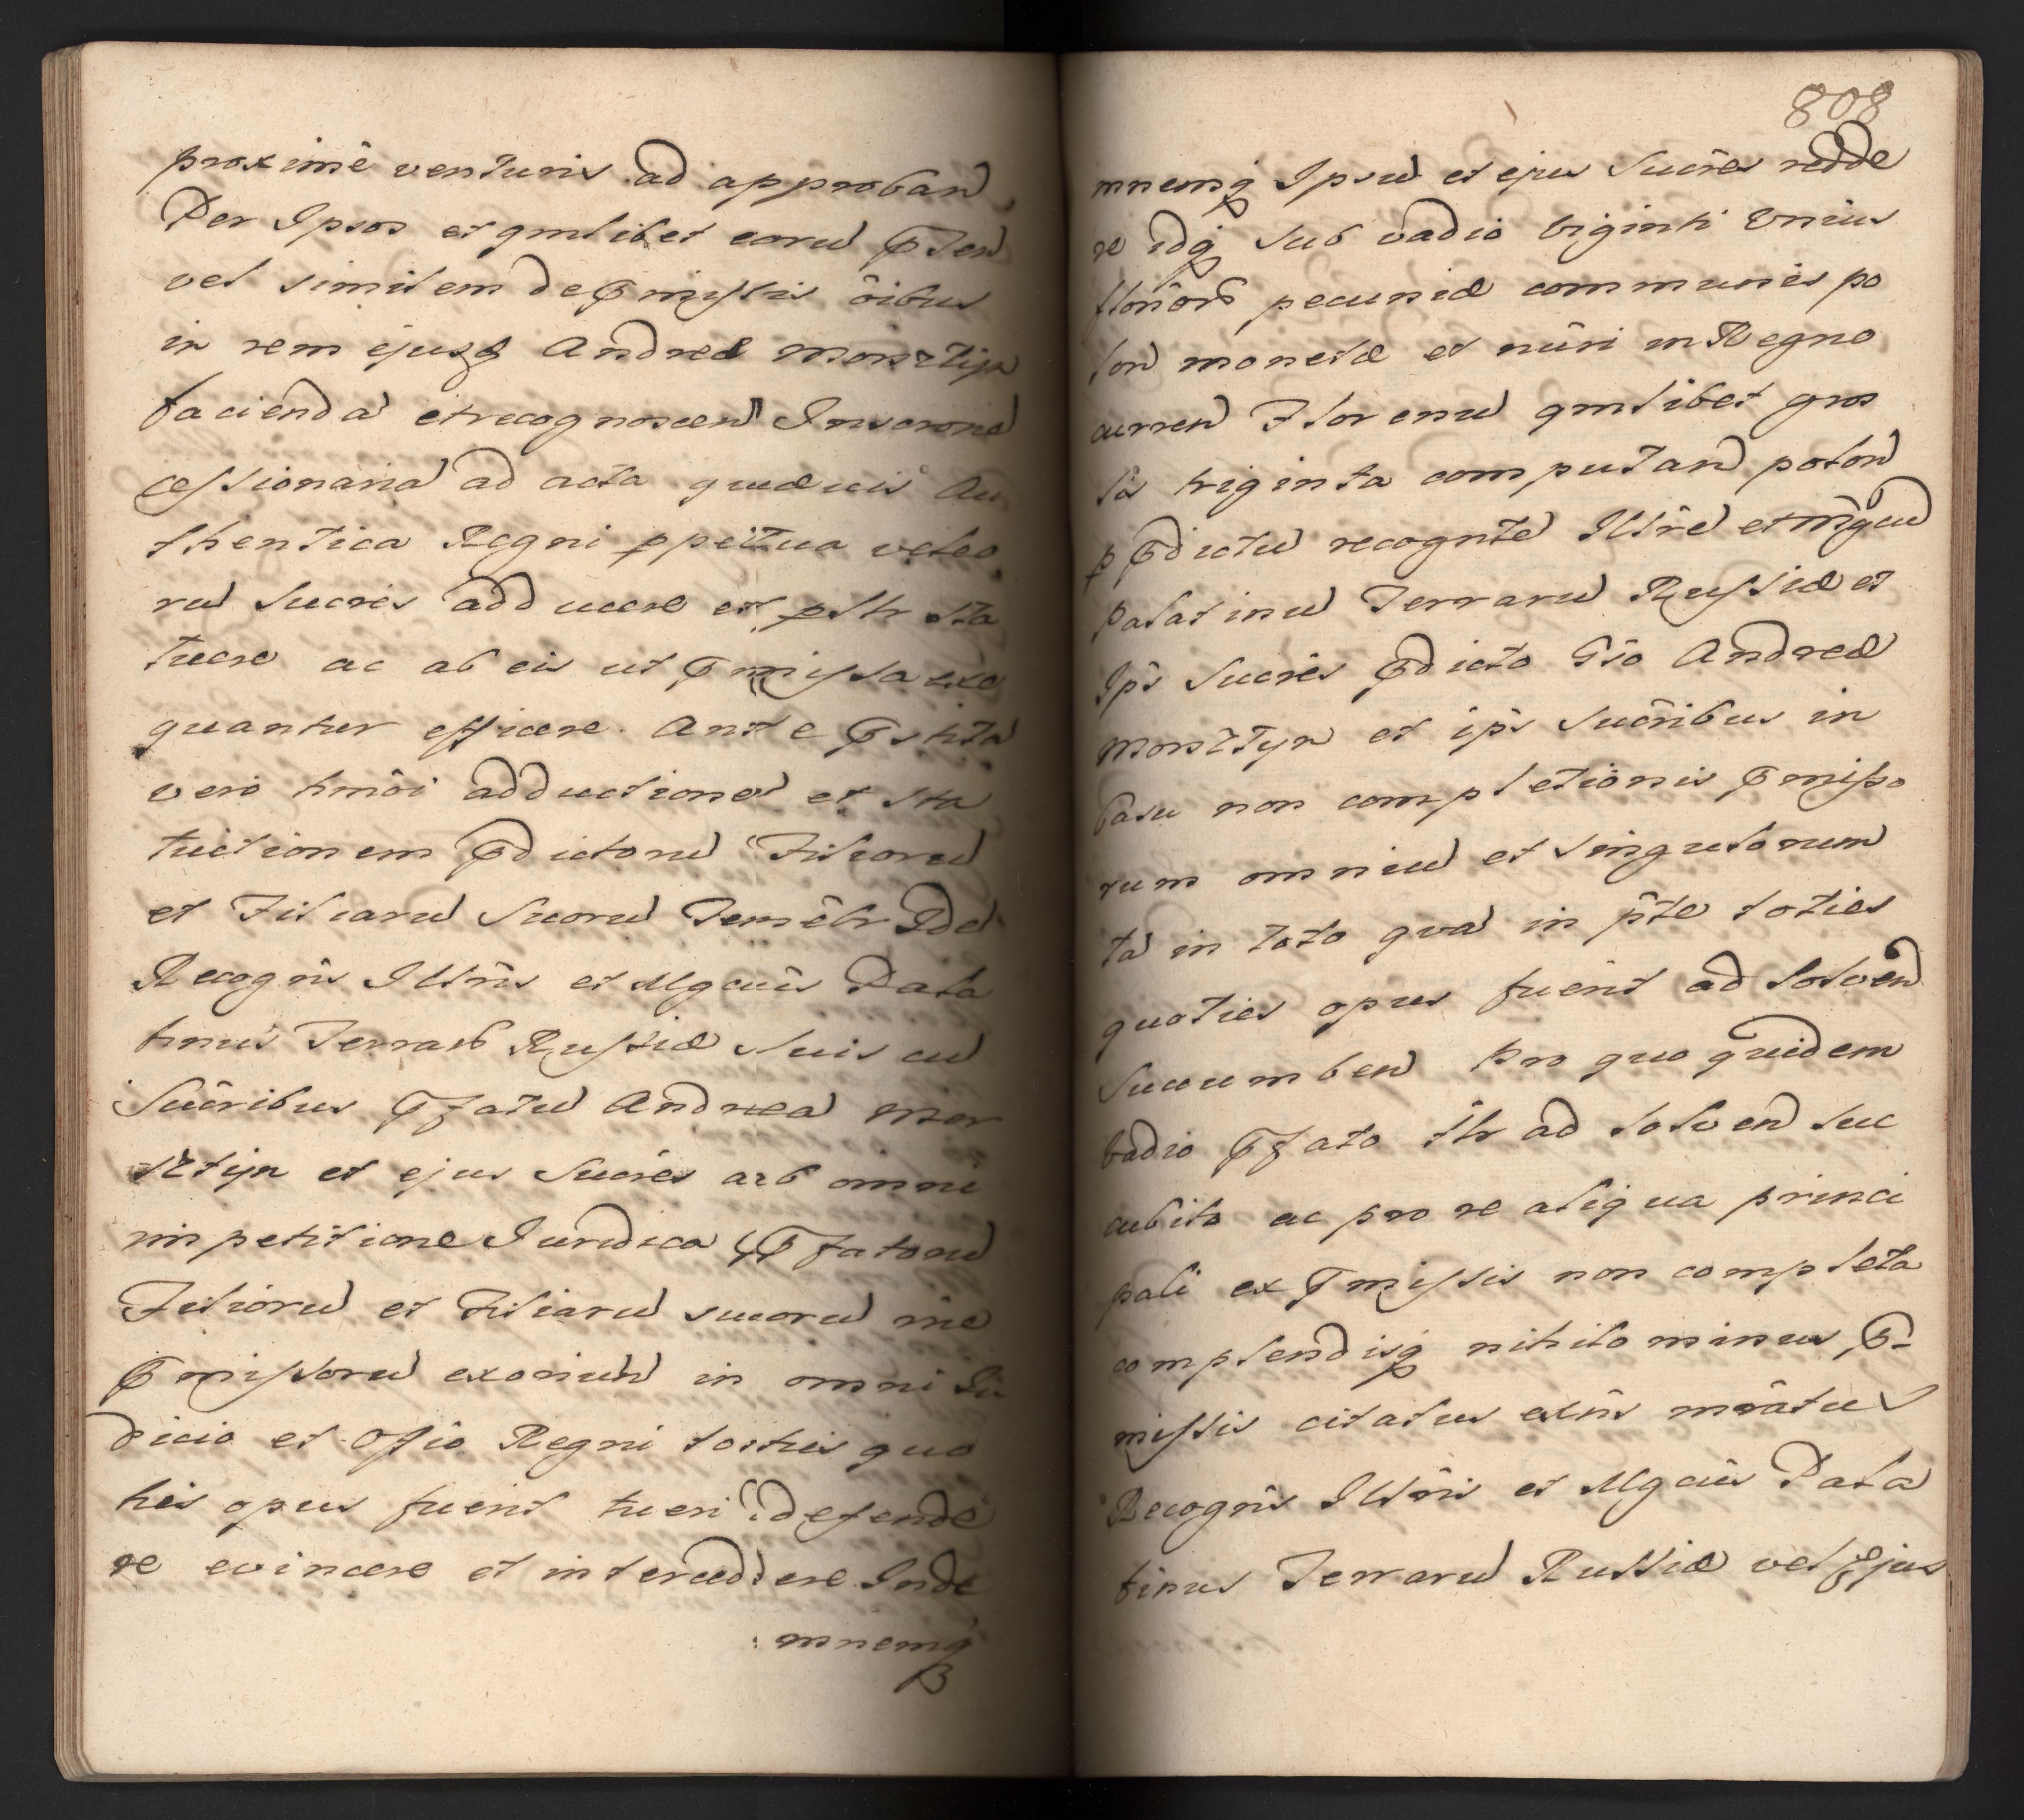 proximê venturis ad approban
Per Ipsos et qmlibet eorū Pñten
vel similem de Pmissis ôibus
in rem ejusq Andreæ Morsztijn
faciendā et recognoscen Inscronē
cessionariā ad acta quævis Au
thentica Regni ppeitua veleo
rū Sucres adducere et pltr sta
tuere ac ab eis ut Pmissa exe
quantur efficere. Ante Pstitā
vero hmôi adductionē et sta
tuitionem Pdictorū Filiorū
et Filiarū Suorū Semêlr Idē
Recogñs Illñs et Mgcûs Pala
tinus Terrarb Russiæ Suis cū
Sucêribus Pfatū Andreā Mor
sztijn et ejus Sucrês arb omni
impetitione Juridica Pfatorū
Filiorū et Filiarū suorū rñe
Pmissorū exoriun in omni Iu
dicio et Offio Regni toties quo
ties opus fuerit tueri defende
re evincere et intercedere Inde
mnemq
808
mnemq Ipsū et ejus Sucrês redde
re idq sub vadio viginti Unius
flonorb pecuniæ communis po
lon monetæ et nûri in Regno
curren Florenū qmlibet gros
sis triginta computan polon
p Pdictū recognte Illrê et Mgcū
Palatinū Terrarū Russiæ et
Ips Sucrês Pdicto Gso Andreæ
Morsztyn et ips Sucribus in
Casu non completionis Pmisso
rum omniū et singulorum
tā in toto qvā in pte toties
quoties opus fuerit ad solven
Succumben Pro quo quidem
vadio Pfato tlr ad solven suc
cubito ac pro re aliqua princi
pali ex Pmissis non completa
complendisq nihilominus P-
missis citatus exñs môatus
Recogñs Illñs et Mgcûs Pala
tinus Terrarū Russiæ vel Ejus